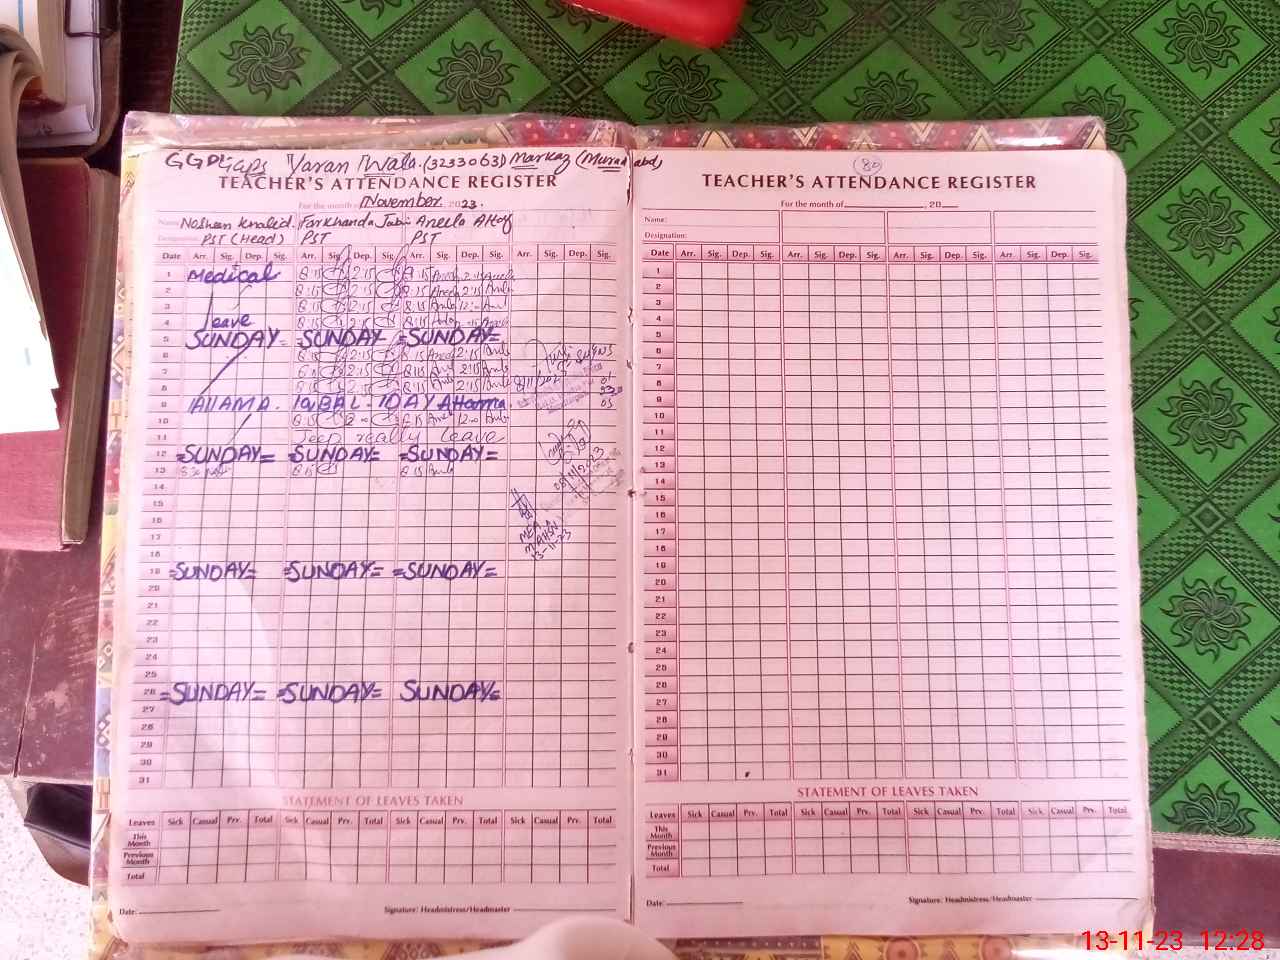 GGPS Yaran Wala (32330631) Markaz (Murad abd)
TEACHER'S ATTENDANCE REGISTER
For the month of November, 2023.
Name: Nosheen Khalid. Farkhanda Jabi Aneela Altaf
Designation: PST (Head) PST PST
Date Arr. Sig. Dep. Sig. Arr. Sig. Dep. Sig. Arr. Sig. Dep. Sig. Arr. Sig. Dep. Sig.
1 Medical 8:15 2:15 8:15 2:15
2 8:15 2:15 8:15 2:15
3 8:15 2:15 8:15 12:00
4 leave 8:15 2:15 8:15
5 SUNDAY= =SUNDAY =SUNDAY=
6 8:15 2:15 8:15 2:15
7 2:15 8:15 2:15
8 8:15 2:15 8:15 2:15
9 ALLAMA. IQBAL. DAY
10 8:15 8:15 12:00
11 leave
12 =SUNDAY= =SUNDAY= =SUNDAY=
13 8:15 8:15
14
15
16
17
18
19 =SUNDAY= =SUNDAY= =SUNDAY=
20
21
22
23
24
25
26 =SUNDAY= =SUNDAY= SUNDAY=
27
28
29
30
31
MEA
13-11-23
STATEMENT OF LEAVES TAKEN
Leaves Sick Casual Prv. Total Sick Casual Prv. Total Sick Casual Prv. Total Sick Casual Prv. Total
This Month
Previous Month
Total
Date: Signature: Headmistress/Headmaster
80
TEACHER'S ATTENDANCE REGISTER
For the month of , 20
Name:
Designation:
Date Arr. Sig. Dep. Sig. Arr. Sig. Dep. Sig. Arr. Sig. Dep. Sig. Arr. Sig. Dep. Sig.
1
2
3
4
5
6
7
8
9
10
11
12
13
14
15
16
17
18
19
20
21
22
23
24
25
26
27
28
29
30
31
STATEMENT OF LEAVES TAKEN
Leaves Sick Casual Prv. Total Sick Casual Prv. Total Sick Casual Prv. Total Sick Casual Prv. Total
This Month
Previous Month
Total
Date: Signature: Headmistress/Headmaster
13-11-23 12:28